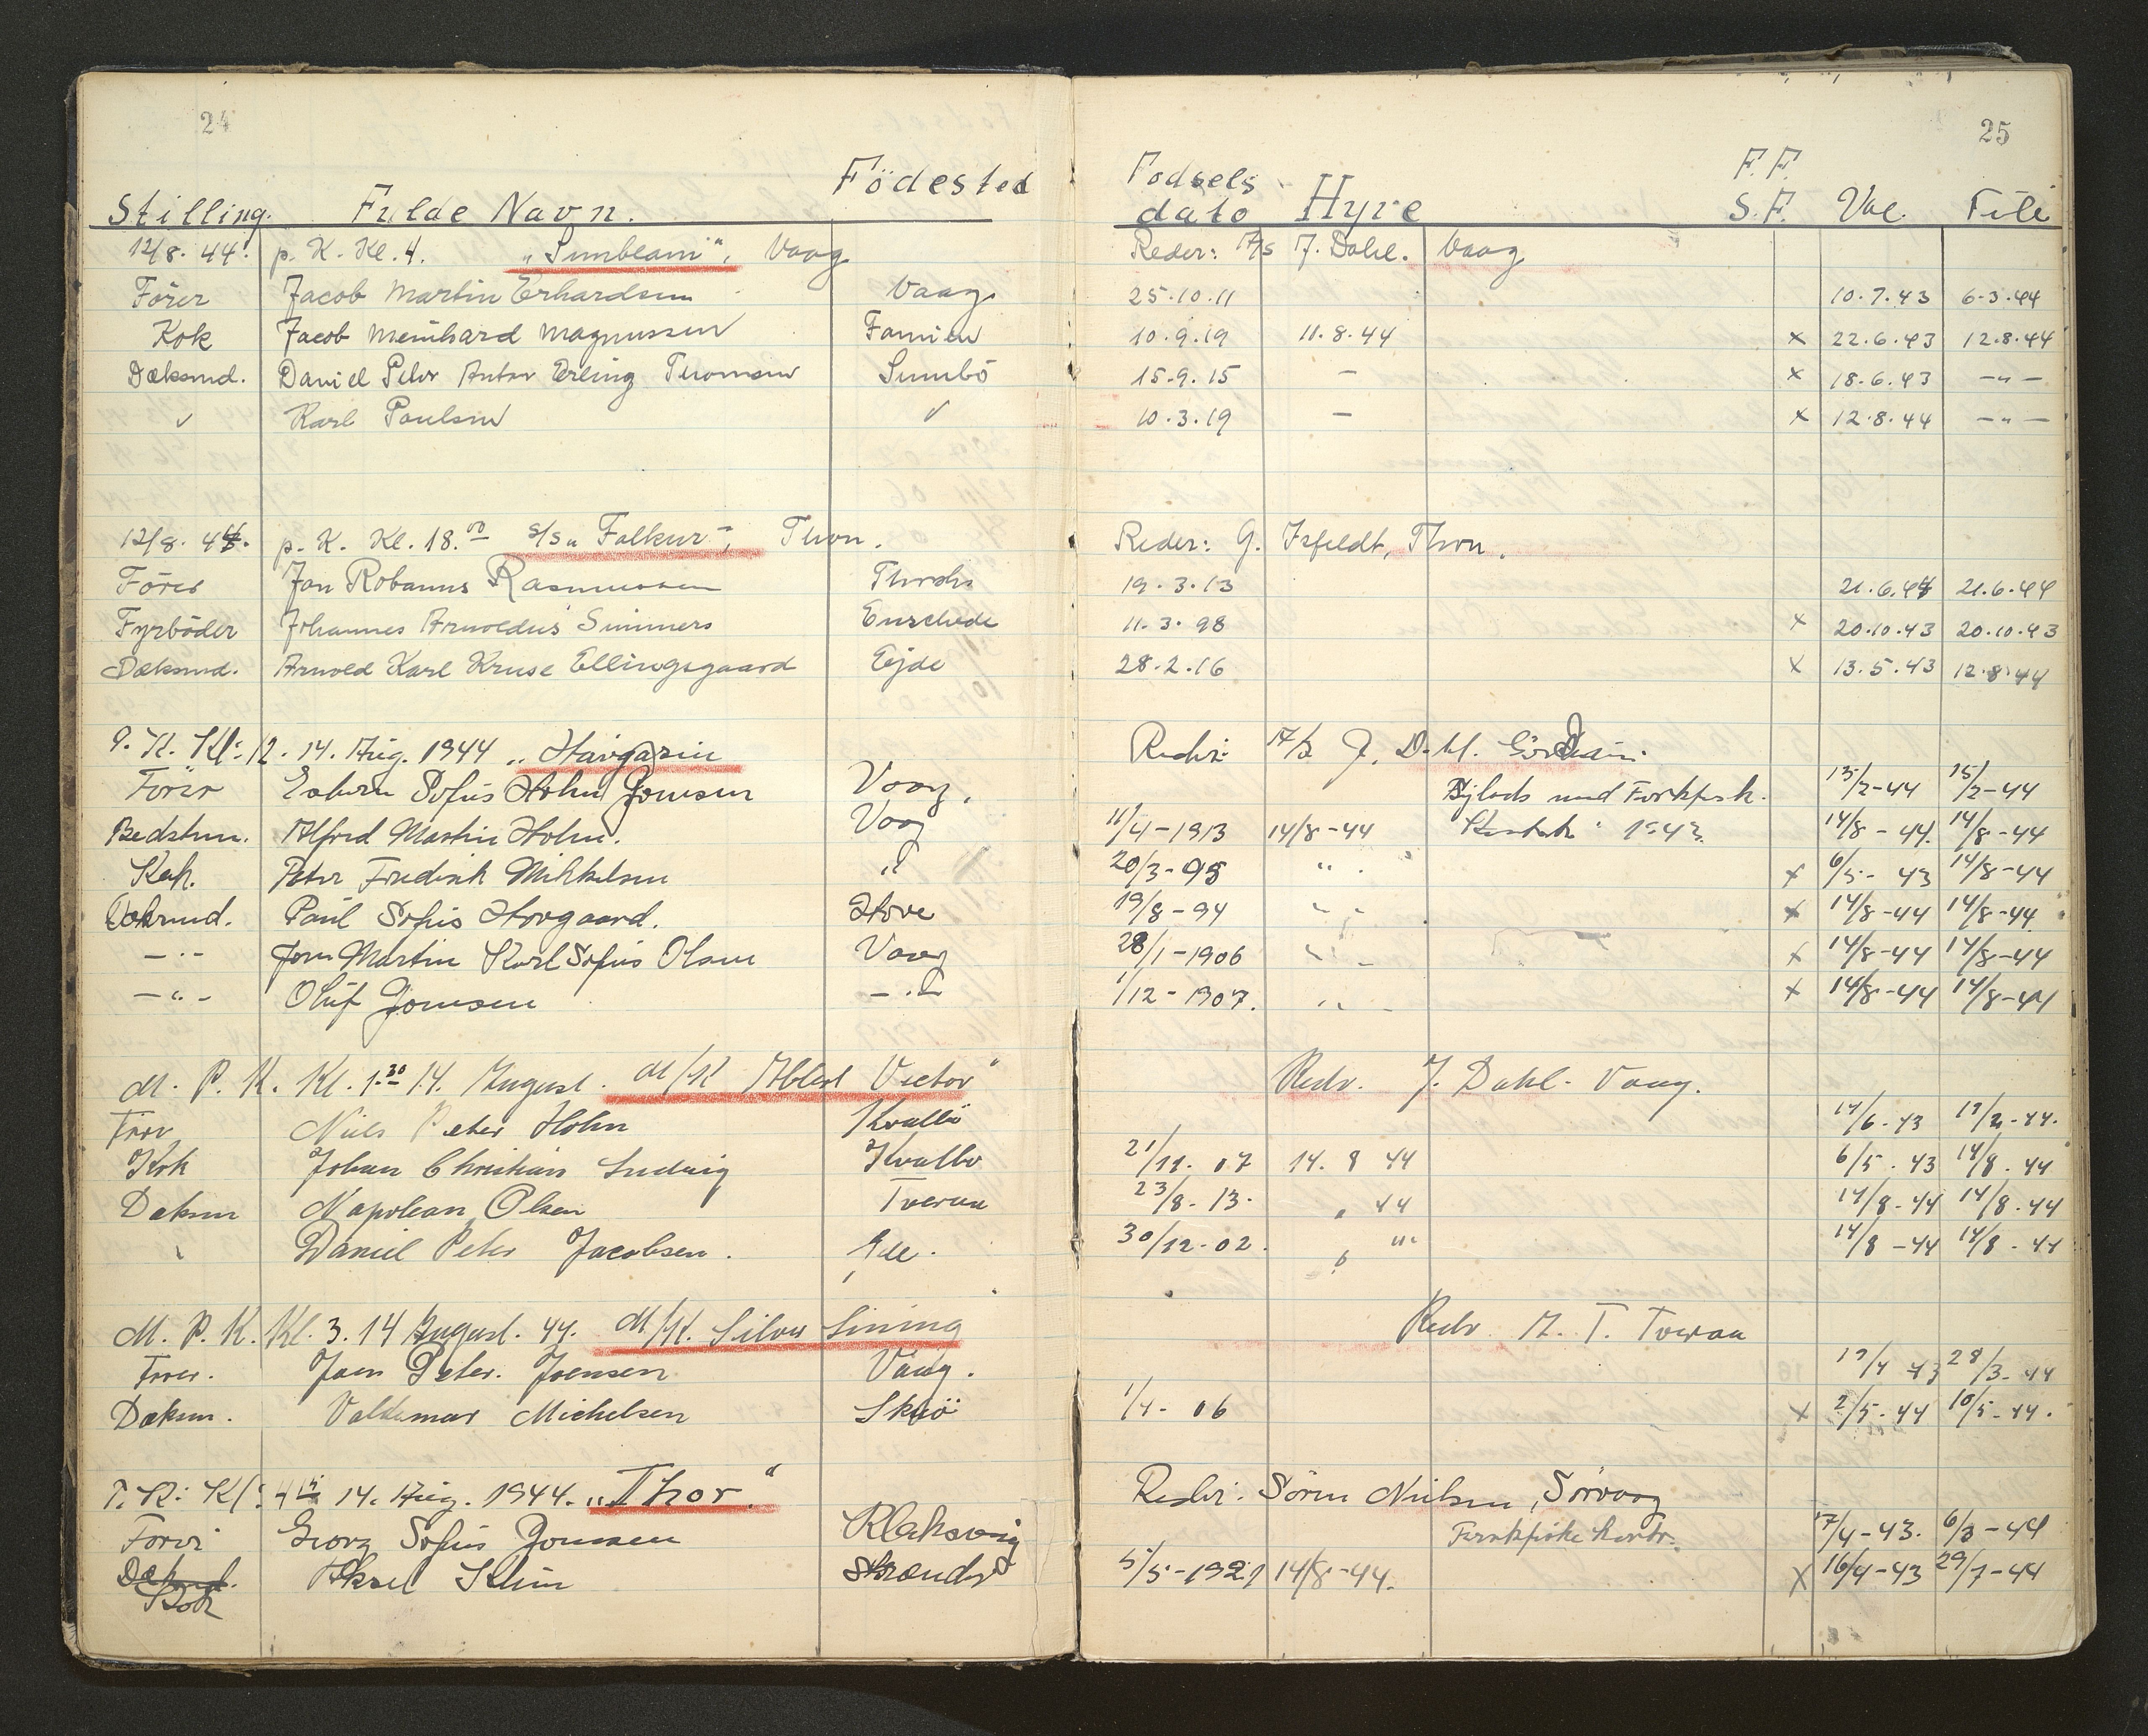 24
Stilling. Fulde Navn. Födested
12/8. 44. p. K. Kl. 4. „Sunbeam“, Vaag
Förer Jacob Martin Erhardsen Vaag
Kok Jacob Meinhard Magnussen Famien
Dæksmd. Daniel Peter Anton Erling Thomsen Sumbö
✓ Karl Poulsen ✓
12/8. 44. p. K. Kl. 18.00 S/S „Falkur“, Thvn.
Förer Jon Rasmussen Thvn
Fyrböder Johannes Arnoldus Simmers Enschede
Dæksmd. Arnold Karl Kruse Ellingsgaard Ejde
P. K. Kl: 12. 14. Aug. 1944 „Havgasin
Förer Sofus Holm Joensen Vaag.
Bedstm. Alfred Martin Holm. Vaag
Kok. Peter Fredrik Mikkelsen "
Dæksmd. Paul Sofus Hovgaard. Hove
— " — Jorn Martin Karl Sofus Olsen Vaag
— " — Oluf Joensen — " —
M. P. K. Kl. 1.30 14. August. M/K Albert Victor“
Förer Niels Peter Holm Kvalbö
Kok Johan Christian Ludvig Kvalbö
Dæksm Napolean Olsen Tveraa
" Daniel Peter Jacobsen. Ede.
M. P. K. Kl. 3. 14 August. 44. M/K. Silver Lining
Förer. Joen Peter. Joensen Vaag.
Dæksm. Valdemar Michelsen Skuö
P. K: Kl: 4 14. Aug. 1944. „Thor.“
Förer Georg Sofus Joensen Klaksvig
Kok Aksel Klein Strender
25
Fodsels dato Hyre F.F. S.F. Vac. Tili
Reder: A/S J. Dahl. Vaag
25.10.11 10.7.43 6.3.44
10.9.19 11.8.44 x 22.6.43 12.8.44
15.9.15 — x 18.6.43 — " —
10.3.19 — x 12.8.44 — " —
Reder: G. Isfeldt, Thvn.
19.3.13 21.6.44 21.6.44
11.3.98 x 20.10.43 20.10.43
28.2.16 x 13.5.43 12.8.44
Reder: A/S J. Dahl.
15/2-44 15/2-44
11/4-1913 14/8-44 14/8-44. 14/8-44
20/3-98 " x 6/5-43 14/8-44
19/8-94 " x 14/8-44 14/8-44.
28/1-1906 " x 14/8-44 14/8-44
1/12-1907. " x 14/8-44 14/8-44
Reder. J. Dahl. Vaag.
14/6-43 19/2-44.
21/11. 07 14. 8 44 6/5. 43 14/8. 44
23/8. 13. „ 44 14/8-44 14/8.44
30/12-02. „ "" 14/8-44 14/8-44
Reder M. T. Tveraa
19/4 43 28/3-44
1/4- 06 x 2/5-44 10/5-44.
Reder. Sören Nielsen, Sörvaag
17/4-43. 6/3-44
5/5-1921 14/8-44. x 16/4-43 29/7-44